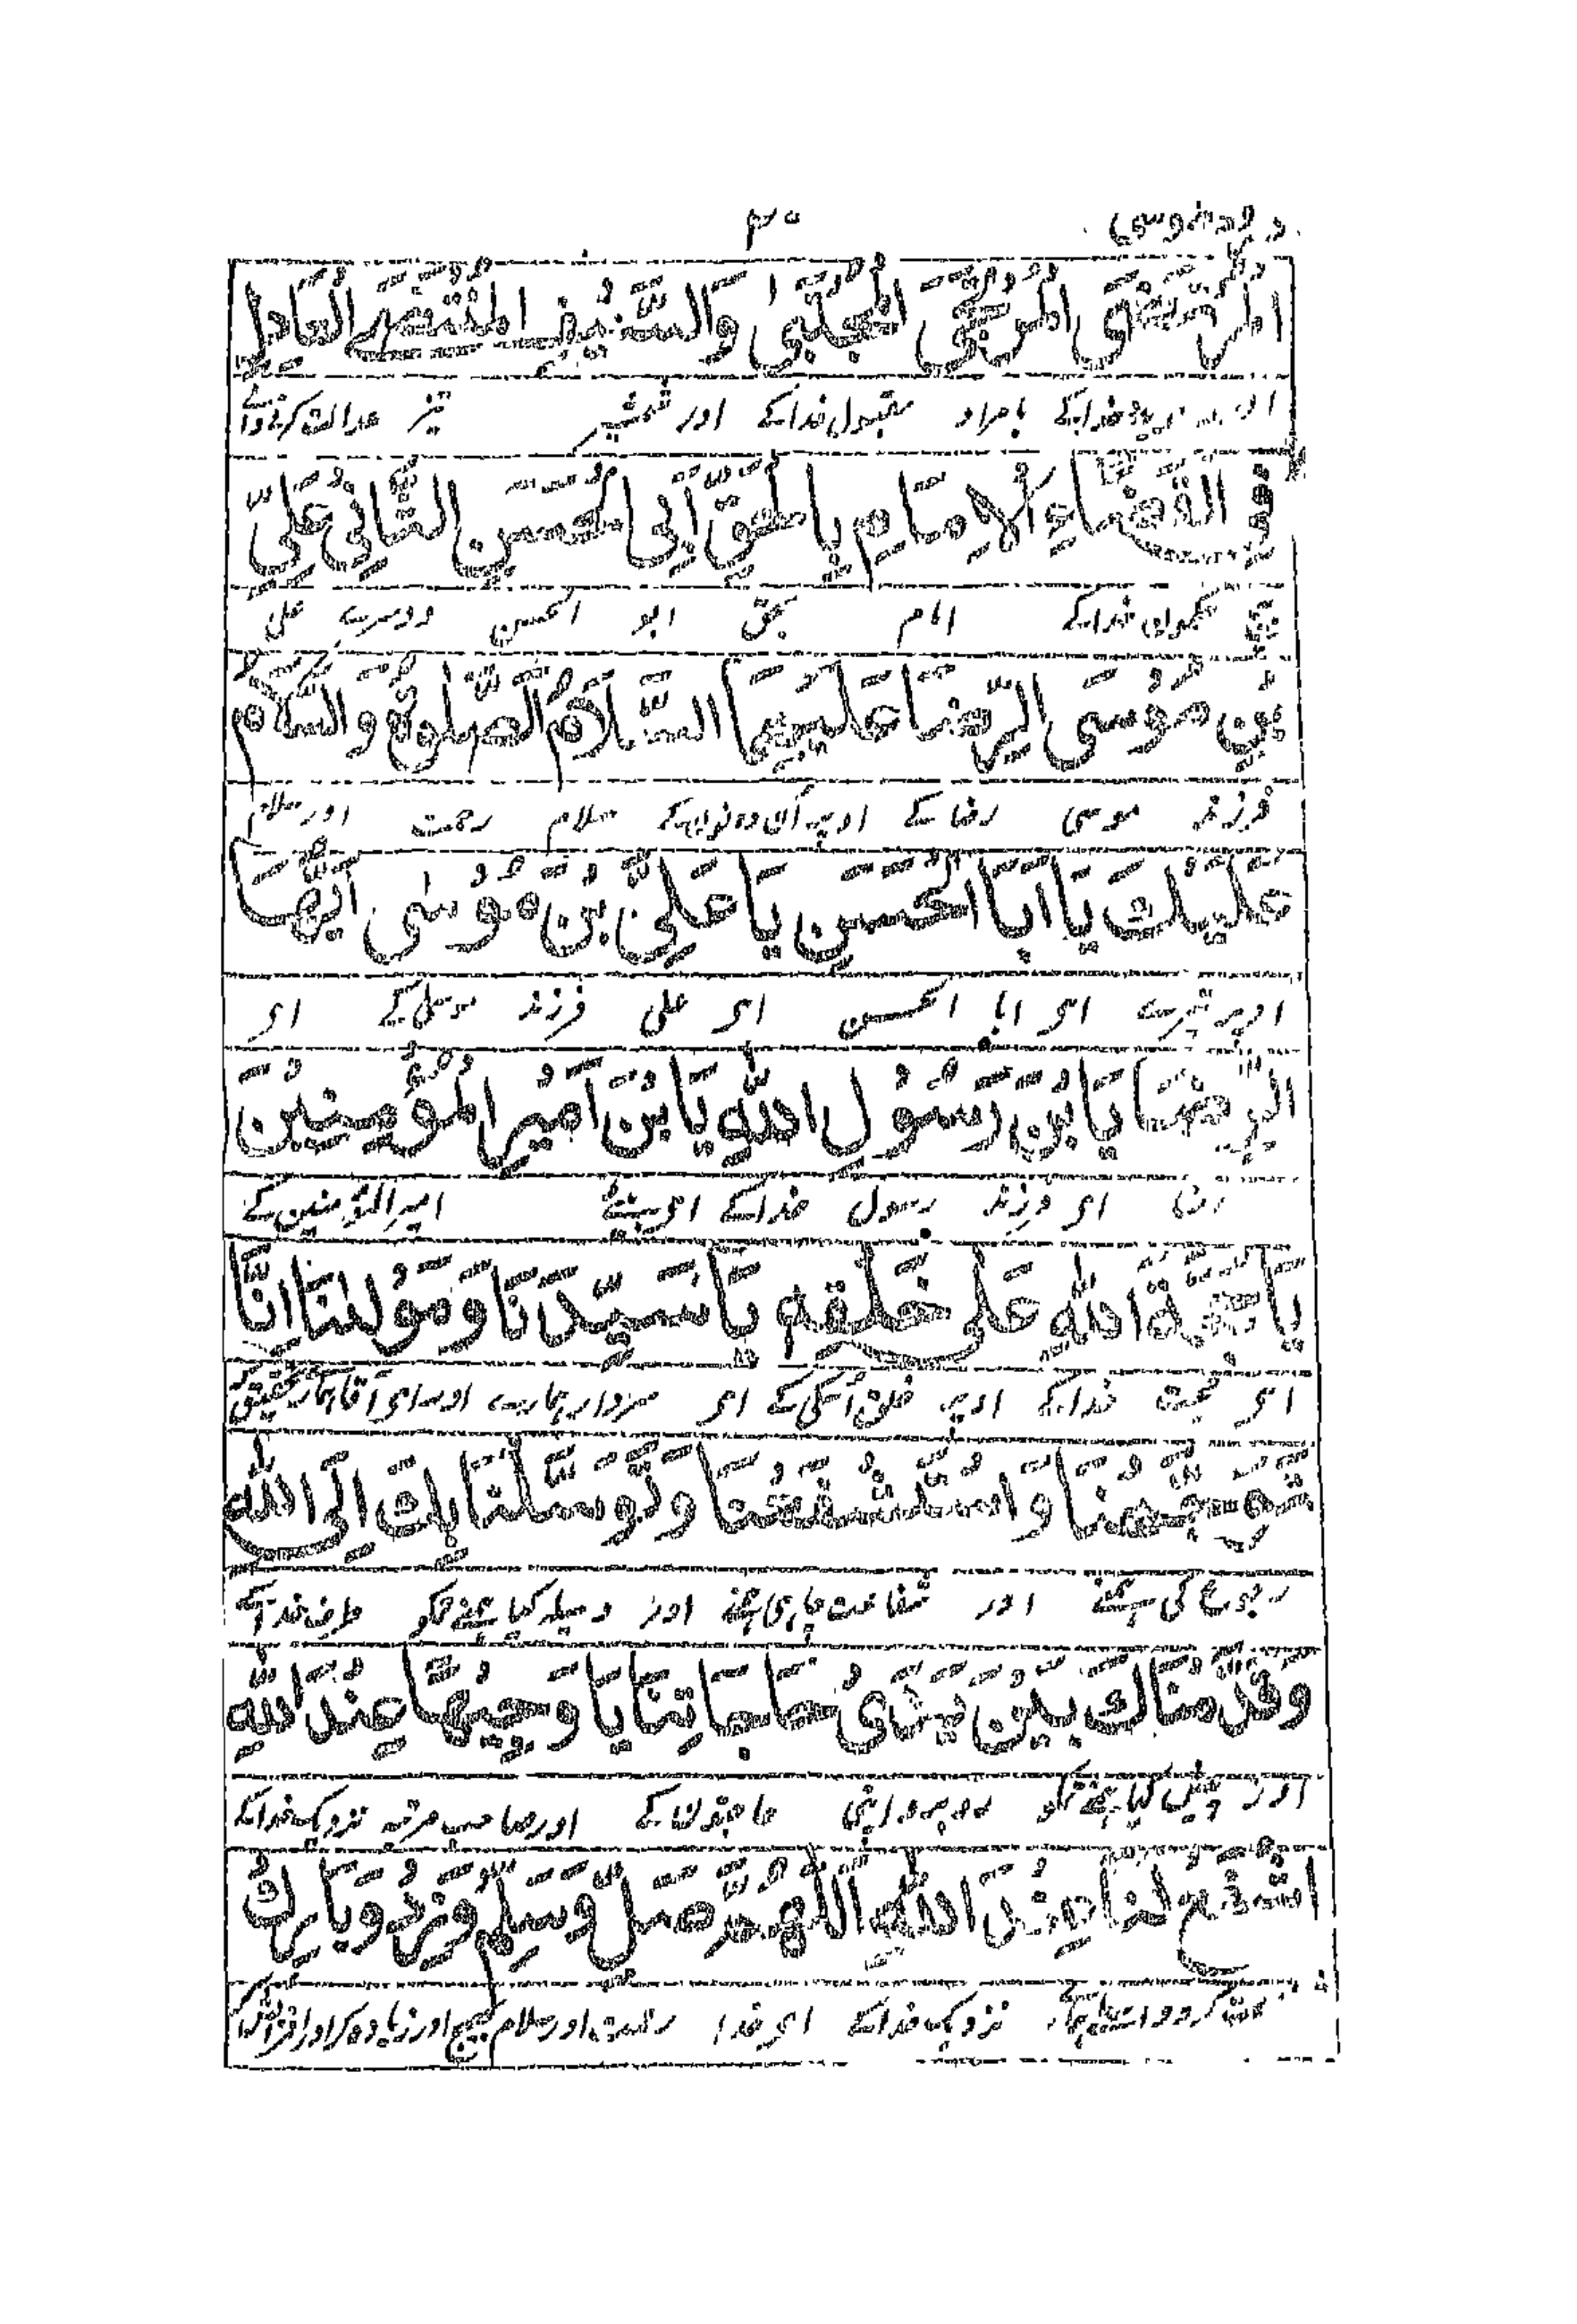 درود طوسی ۳۰
الْمُرْتَضَى الْمُرْتَجَى الْمُجْتَبَى وَالسَّيْفِ الْمُنْتَضَى الْعَادِلِ
خدا کے بامراد مقبول خدا کے اور شمشیر تیز عدالت کرنے والے
فِي الْقَضَاءِ الْإِمَامِ بِالْحَقِّ أَبِي الْحَسَنِ الثَّانِي عَلِيِّ
بیچ حکموں خدا کے امام بحق ابو الحسن دوسرے علی
بْنِ مُوسَى الرِّضَا عَلَيْهِمَا السَّلَامُ الصَّلٰوةُ وَالسَّلَامُ
فرزند موسی رضا کے اوپر ان دونوں کے سلام رحمت اور سلام
عَلَيْكَ يَا أَبَا الْحَسَنِ يَا عَلِيَّ بْنَ مُوسٰى أَيُّهَا
اوپر تیرے ای ابا الحسن ای علی فرزند موسیٰ کے ای
الرِّضَا يَا بْنَ رَسُولِ اللهِ يَا بْنَ أَمِيرِ الْمُؤْمِنِينَ
رضا ای فرزند رسول خدا کے ای بیٹے امیر المؤمنین کے
يَا حُجَّةَ اللهِ عَلٰى خَلْقِهِ يَا سَيِّدَنَا وَمَوْلٰنَا إِنَّا
ای حجت خدا کے اوپر خلق اسکی کے ای سردار ہمارے اور ای آقا ہمارے تحقیق
تَوَجَّهْنَا وَاسْتَشْفَعْنَا وَتَوَسَّلْنَا بِكَ إِلَى اللهِ
رجوع کی ہمنے اور شفاعت چاہی ہمنے اور وسیلہ کیا ہمنے تمکو طرف خدا کے
وَقَدَّمْنَاكَ بَيْنَ يَدَيْ حَاجَاتِنَا يَا وَجِيْهًا عِنْدَ اللهِ
اور پیش کیا ہمنے تمکو روبرو اپنی حاجتوں کے اور صاحب مرتبہ نزدیک خدا کے
اشْفَعْ لَنَا عِنْدَ اللهِ اَللّٰهُمَّ صَلِّ وَسَلِّمْ وَزِدْ وَبَارِكْ
کرو واسطے ہمارے نزدیک خدا کے ای خدا رحمت اور سلام بھیج اور زیادہ کر اور